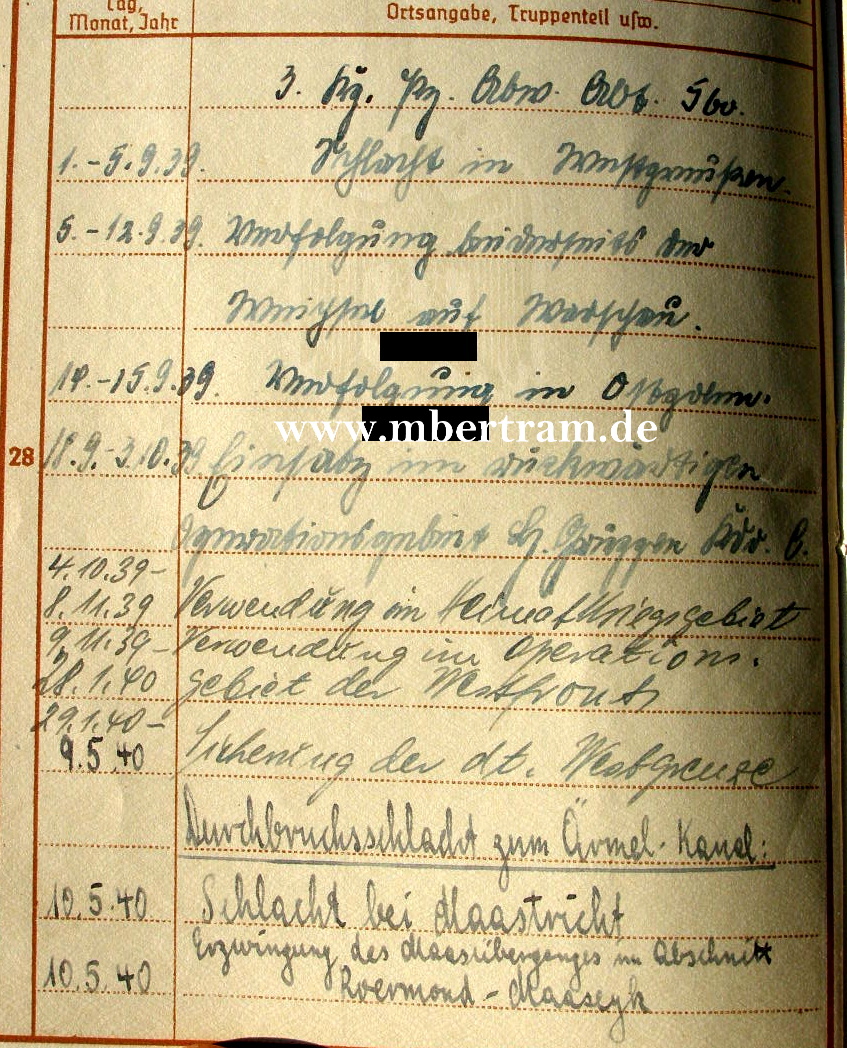 Tag,
Monat, Jahr
Ortsangabe, Truppenteil usw.
3. Kp. Pz. Abw. Abt. 560.
1.-5.9.39. Schlacht in Westpreußen.
5.-12.9.39. Verfolgung beiderseits der
Weichsel auf Warschau.
14.-15.9.39. Verfolgung in Ostpolen.
www.mbertram.de
28
18.9.-3.10.39 Einsatz im rückwärtigen
Operationsgebiet H. Gruppen Kdo.
4.10.39-
8.11.39 Verwendung im Heimatkriegsgebiet
9.11.39- Verwendung im Operations.
28.1.40 gebiet der Westfront
29.1.40-
9.5.40 Sicherung der dt. Westgrenze
Durchbruchsschlacht zum Ärmel-Kanal:
10.5.40 Schlacht bei Maastricht
Erzwingung des Maasüberganges im Abschnitt
10.5.40 Roermond - Maaseyk